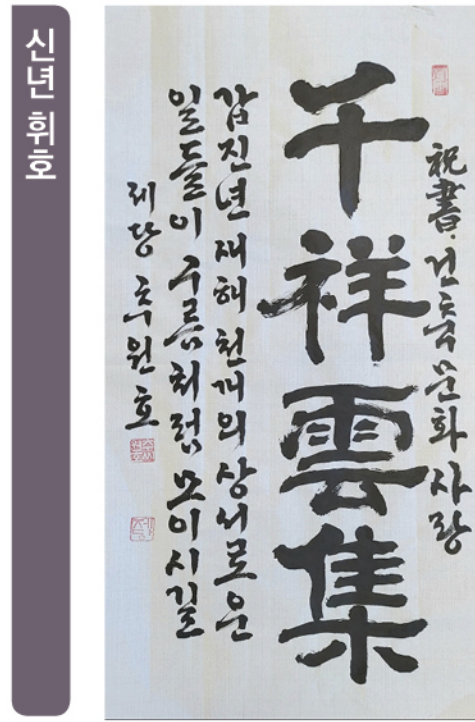 신년 휘호
祝書. 건축문화사랑
千祥雲集
갑진년 새해 천개의 상서로운
일들이 구름처럼 모이시길
추원호